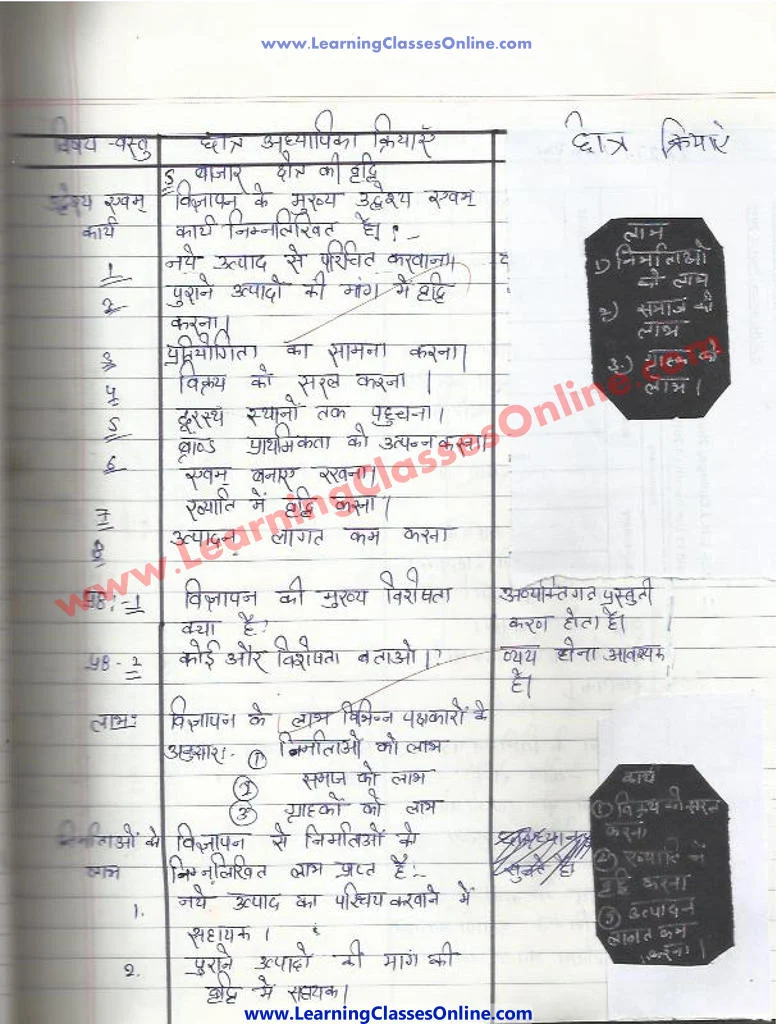 www.LearningClassesOnline.com
विषय-वस्तु छात्र अध्यापिका क्रियाएँ छात्र क्रियाएं
5 बाजार क्षेत्र की वृद्धि
उद्देश्य एवम् विज्ञापन के मुख्य उद्देश्य एवम्
कार्य कार्य निम्नलिखित है। :-
1 नये उत्पाद से परिचित करवाना।
2 पुराने उत्पादो की मांग मे वृद्धि
करना।
3 प्रतियोगिता का सामना करना।
4 विक्रय को सरल करना।
5 दूरस्थ स्थानों तक पहुचना।
6 ब्राण्ड प्राथमिकता को उत्पन्न करना।
एवम् बनाए रखना।
7 ख्याति में वृद्धि करना।
8 उत्पादन लागत कम करना
लाभ
1) निर्माताओ
को लाभ
2) समाज को
लाभ
3) ग्राहक को
लाभ।
www.LearningClassesOnline.com
प्र8:-1 विज्ञापन की मुख्य विशेषता
क्या है?
अव्यक्तिगत प्रस्तुती
करण होता है।
प्र8-2 कोई और विशेषता बताओ।?
व्यय होना आवश्यक
है।
लाभ: विज्ञापन के लाभ विभिन्न पक्षकारों के
अनुसार:- ① निर्माताओ को लाभ
② समाज को लाभ
③ ग्राहकों को लाभ
निर्माताओं के विज्ञापन से निर्माताओं के
लाभ निम्नलिखित लाभ प्राप्त है:-
सुनते है।
1. नये उत्पाद का परिचय करवाने में
सहायक।
2. पुराने उत्पादो की मांग की
वृद्धि मे सहायक।
कार्य
① विक्रय को सरल
करना
② ख्याति में
वृद्धि करना
③ उत्पादन
लागत कम
करना।
www.LearningClassesOnline.com